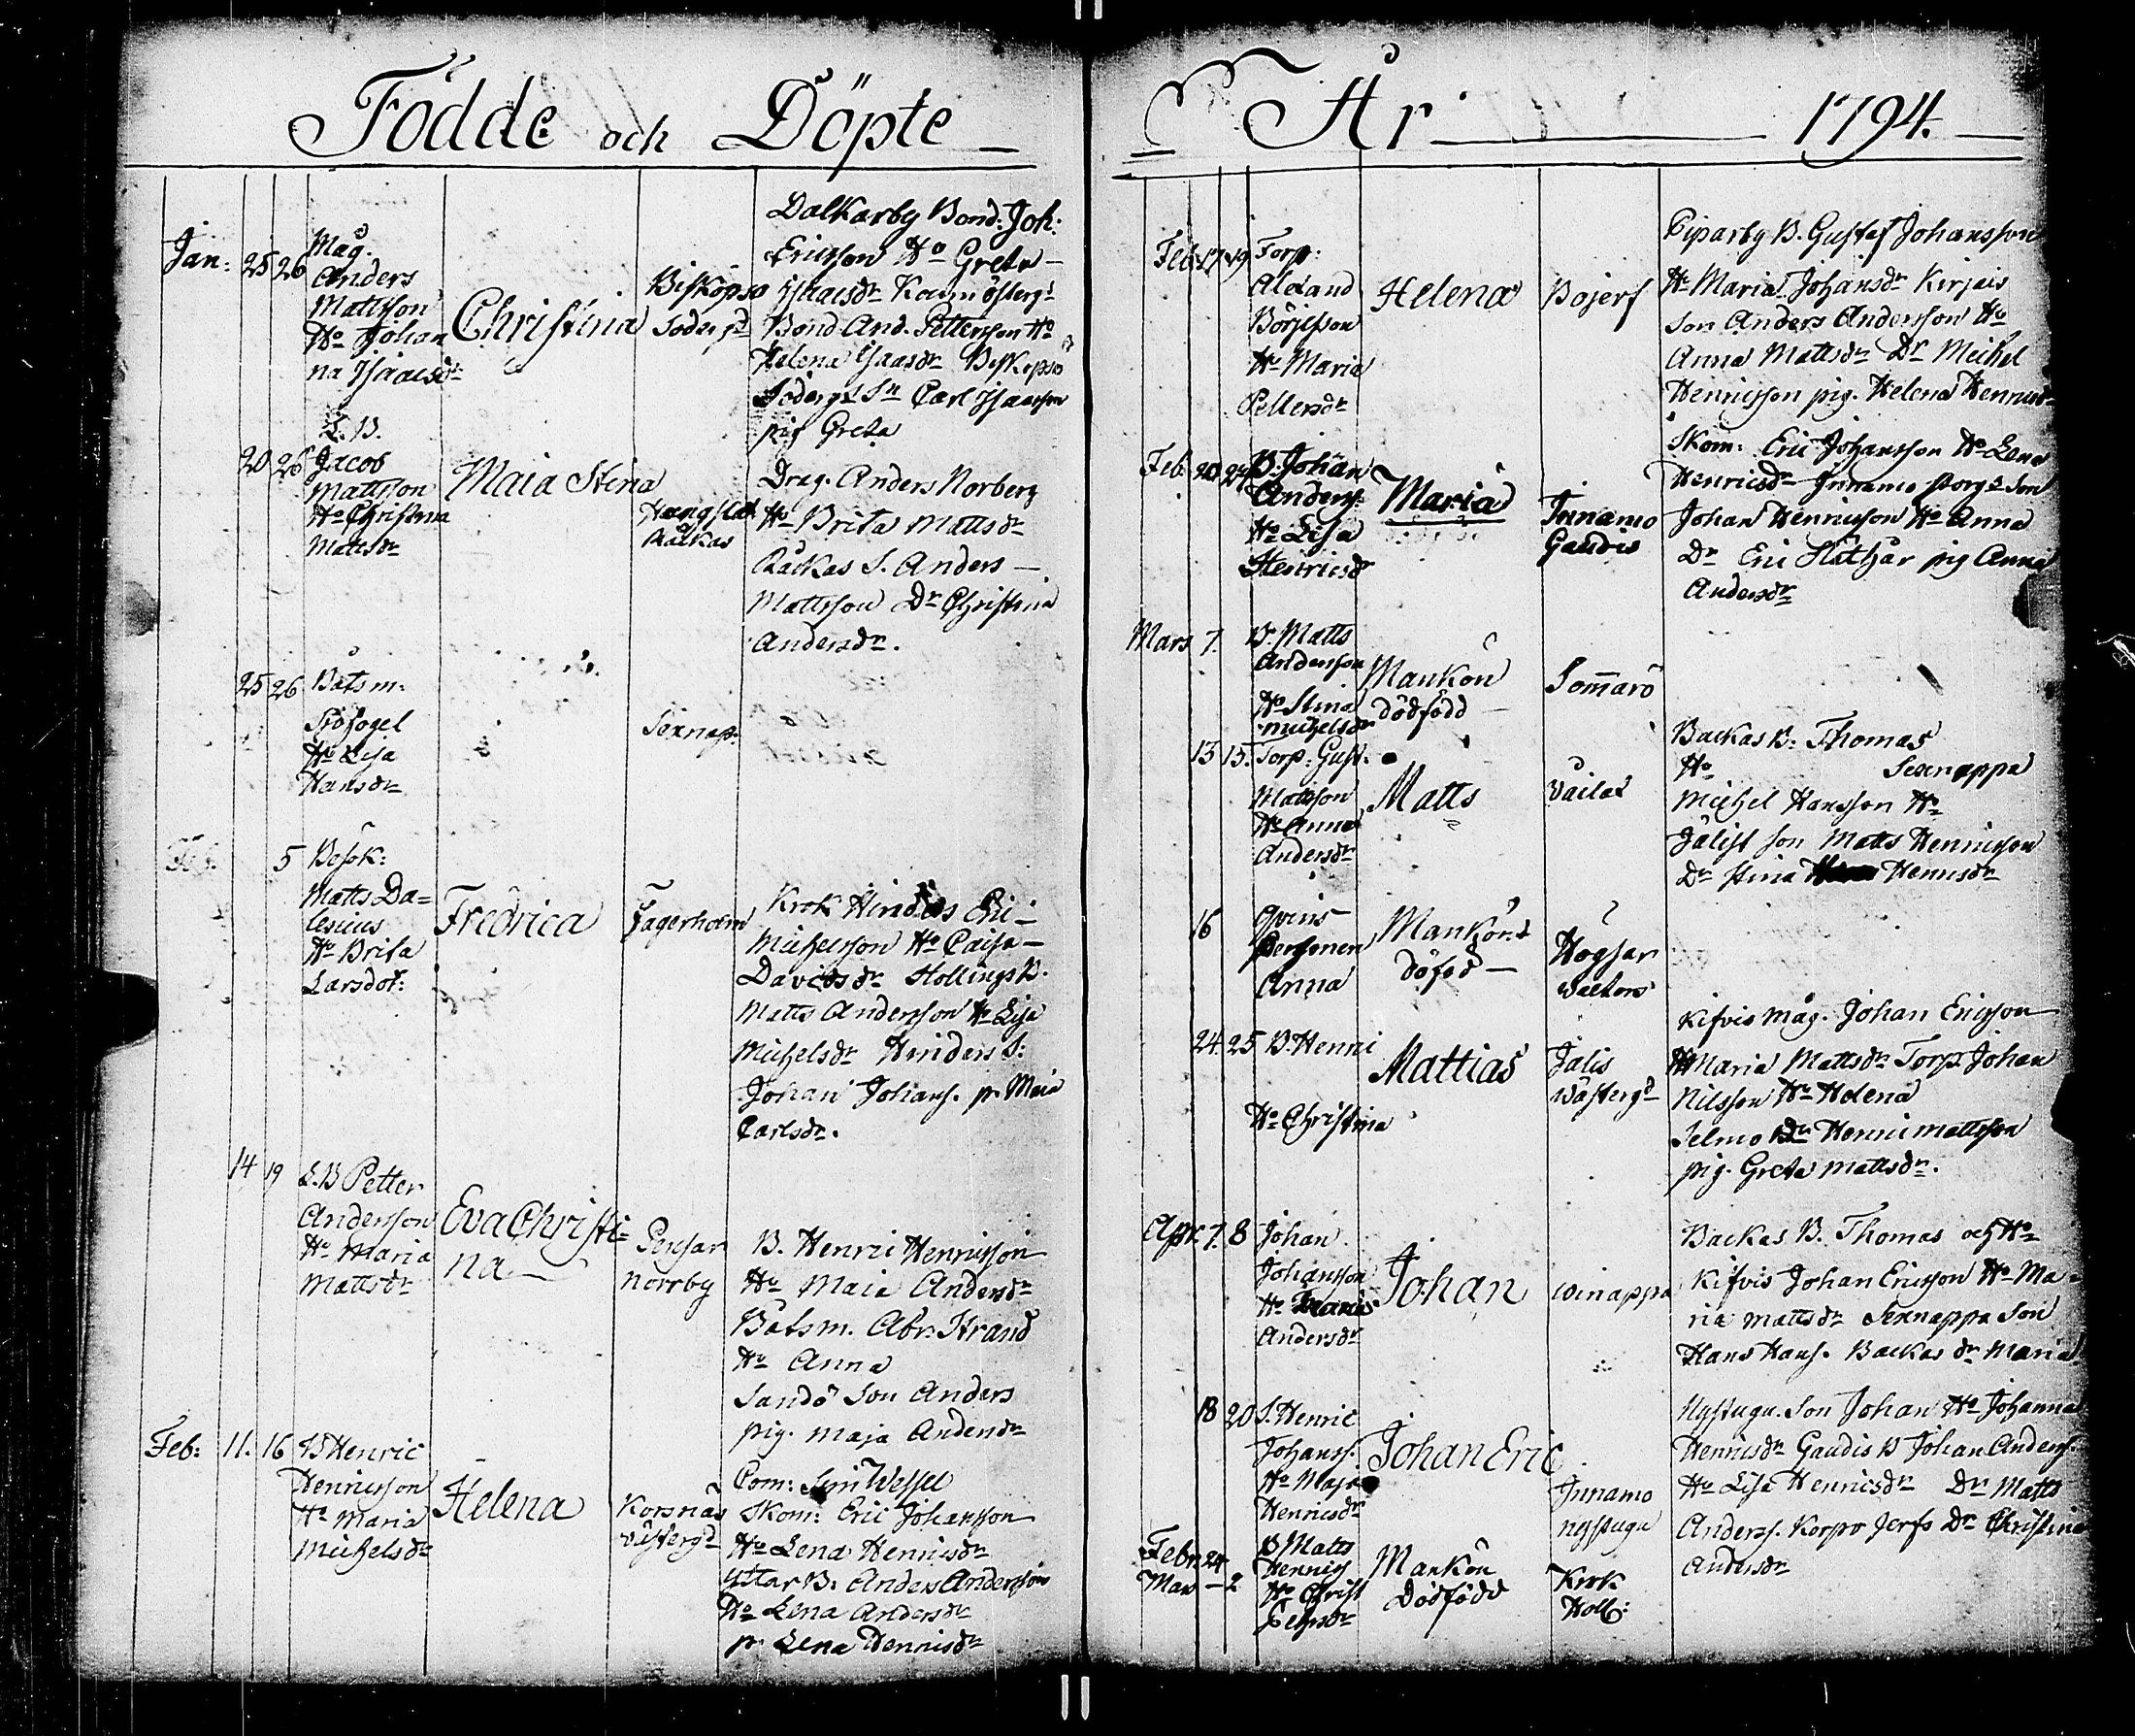 Födde och Döpte
År 1794.
Jan: 25 26 Måg. Anders Mattsson Ho Johanna Isaacsdr
Christina
Biskopsö Söderg:d
Dalkarby Bond: Joh:
Ericsson Ho Greta
Isaacsdr
Bond And. Pettersson Ho
Helena Isaacsdr Biskopsö
Söderg:d Sn Carl Isaacsson
pig Greta
20 26 L. B. Jacob Mattsson Ho Christina Mattsdr
Maia Stina
Räckas
Drag. Anders Norberg
Ho Brita Mattsdr
Räckas S. Anders
Mattsson Dr Christina
Andersdr.
25 26 Båtsm: Siöfogel Ho Lisa Hansdr
Sexnap:
Feb. 5 Besök: Matts Dalecius Ho Brita Larsdot:
Fredrica
Fagerholm
Krok Hinders Eric
Michelsson Ho Caisa
Davidsdr Hollings B.
Matts Andersson Ho Lisa
Michelsdr Hinders S:
Johan Johans. p. Maia
Carlsdr.
14 19 L. B Petter Andersson Ho Maria Mattsdr
Eva Christina
Pensar Norrby
B. Henric Henricsson
Ho Maia Andersdr
Båtsm. Abr. Strand
Ho Anna
Sandö Son Anders
pig. Maja Andersdr
Feb: 11. 16 B Henric Henricsson Ho Maria Michelsdr
Helena
Korsnäs Västerg:d
Com: Sim Wessel
Skom: Eric Johansson
Ho Lena Henricsdr
Yttar B: Anders Andersson
Ho Lena Andersdr
p. Lena Henricsdr
Feb: 17 19 Torp: Alexand Börjesson Ho Maria Pettersdr
Helena
Bojerf
Piparby B. Gustaf Johansson
Ho Maria Johansdr Kirjais
Son Anders Andersson Ho
Anna Mattsdr Dr Michel
Henricsson pig. Helena Henricsdr
Feb 20 24 B. Johan Anders: Ho Lisa Henricsdr
Maria
Innamo Gaudis
Skom: Eric Johansson Ho Lena
Henricsdr Innamo Son
Johan Henricsson Ho Anna
Dr Eric Släthår pig Anna
Andersdr
Mars 7. B. Matts Andersson Ho Stina Michelsdr
Mankön dödfödd
Sommarö
13 15. Torp: Gust. Mattsson Ho Anna Andersdr
Matts
Backas B: Thomas
Ho Sexnappa
Michel Hansson Ho
Jälist Son Matts Henricsson
Dr Stina Henricsdr
16 Qvins Personen Anna
Mankön döfod
Högsar
24. 25 B. Henric Ho Christina
Mattias
Jalis Wästerg:d
Kifvis Måg. Johan Ericsson
Ho Maria Mattsdr Torp. Johan
Nilsson Ho Helena
Selmo Dr Henric Mattsson
pig. Greta Mattsdr.
Apr. 7. 8 Johan Johansson Ho Maria Andersdr
Johan
Winappa
Backas B. Thomas och Ho
Kifvis Johan Ericsson Ho Maria
Mattsdr Sexnappa Son
Hans Hans. Backas dr Maria
18 20 S. Henric Johans. Ho Maja Henricsdr
Johan Eric
Innamo Nystugu
Nystugu. Son Johan Ho Johanna
Henricsdr Gaudis B Johan Anders.
Ho Lisa Henricsdr Dr Matts
Anderss. Korpo Jerfs Dr Christina
Andersdr
Febr. 24 Mars 2 B Matts Henrics Ho Christ
Mankön Dödfödd
Krok Holl: